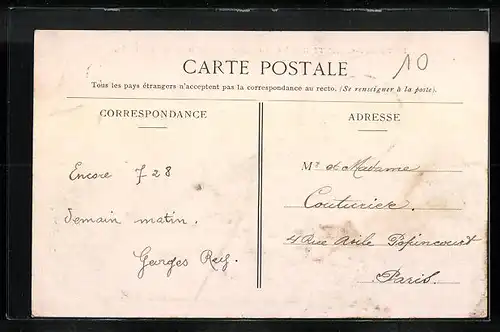 10
CARTE POSTALE
Tous les pays étrangers n'acceptent pas la correspondance au recto. (Se renseigner à la poste).
CORRESPONDANCE
Encore 728
demain matin.
Georges Rey.
ADRESSE
Mr et Madame
Couturier.
4 Rue Asile Popincourt
Paris.